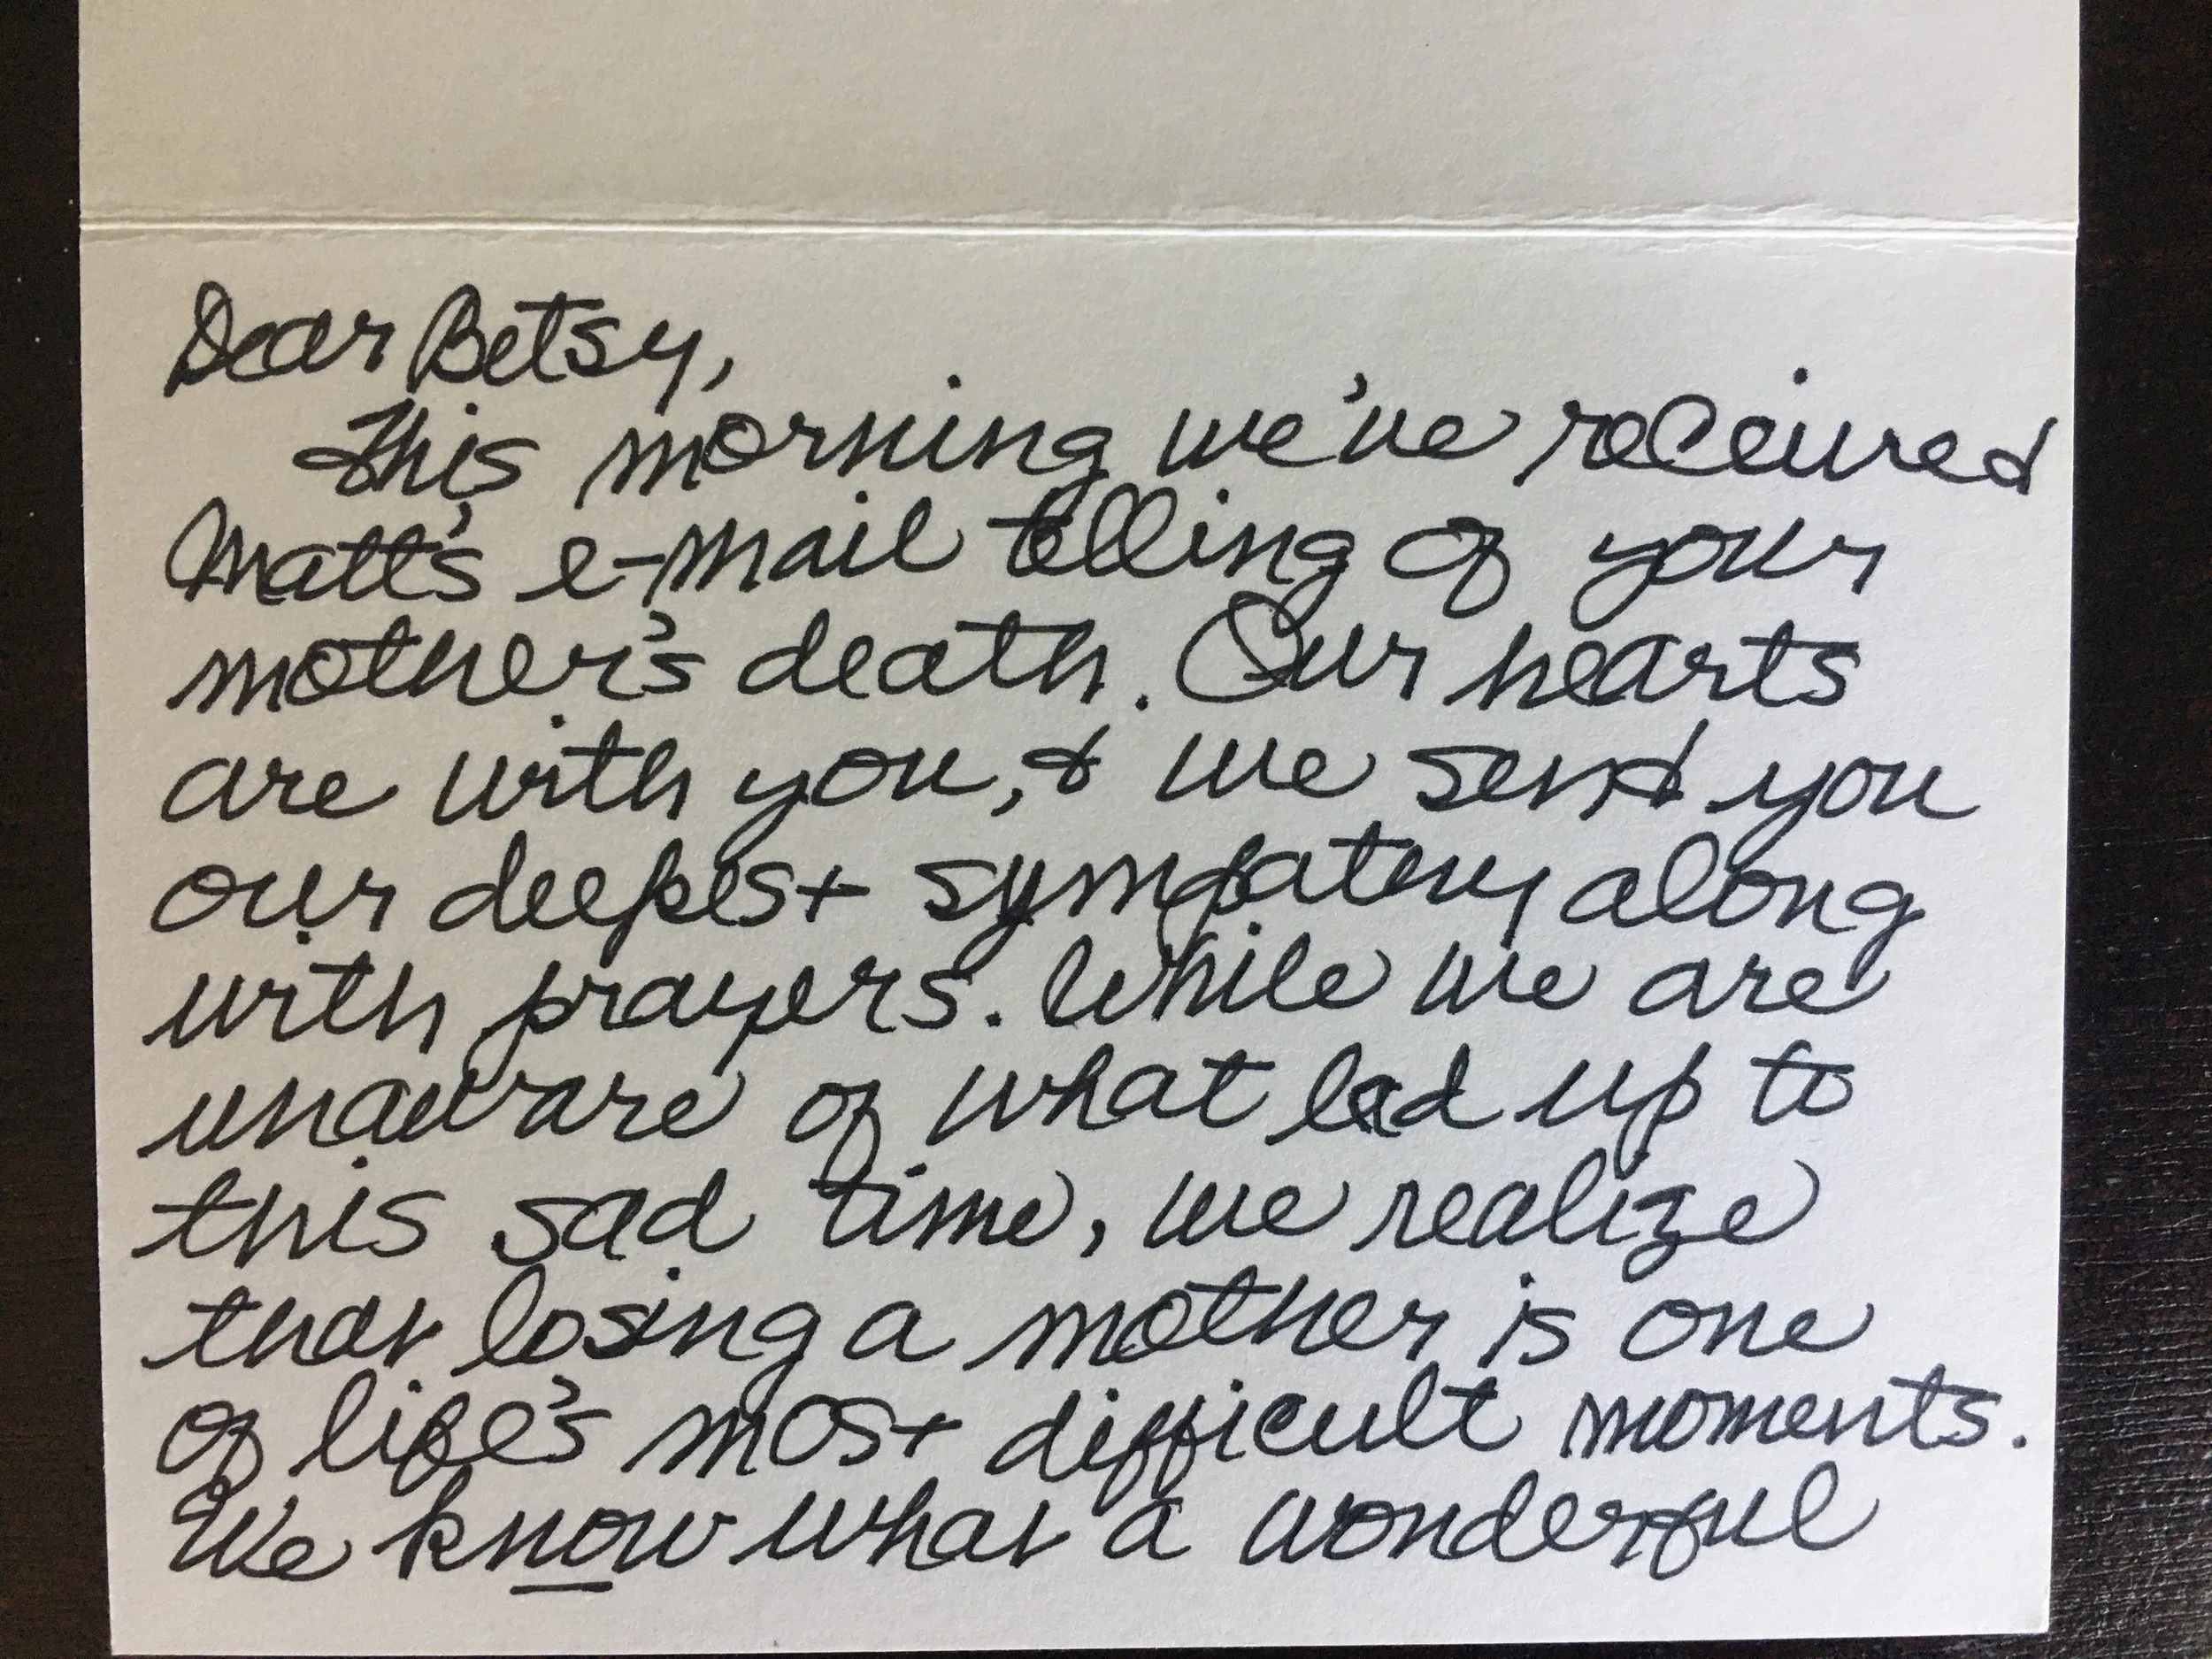 Dear Betsy,
This morning we've received
Matt's e-mail telling of your
mother's death. Our hearts
are with you, & we send you
our deepest sympathy along
with prayers. While we are
unaware of what led up to
this sad time, we realize
that losing a mother is one
of life's most difficult moments.
We know what a wonderful